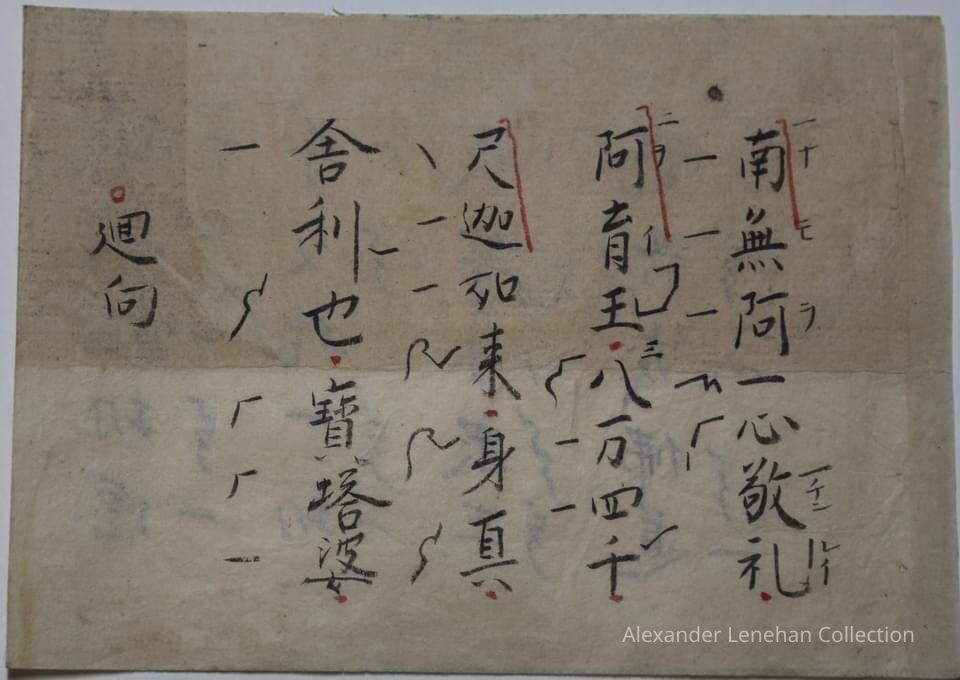 南無阿一心敬礼
阿育王八万四千
尺迦如来身真
舎利也寶塔婆
廻向
Alexander Lenehan Collection